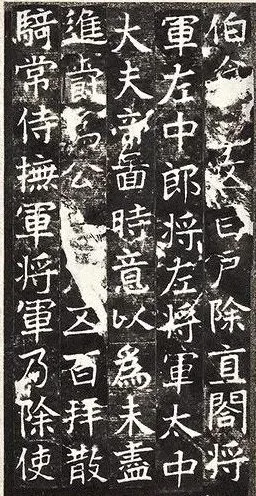 伯食百户除直閤将
軍左中郎将左將軍太中
大夫帝啚時意以為未盡
進爵為公五百拜散
騎常侍撫軍将軍乃除使